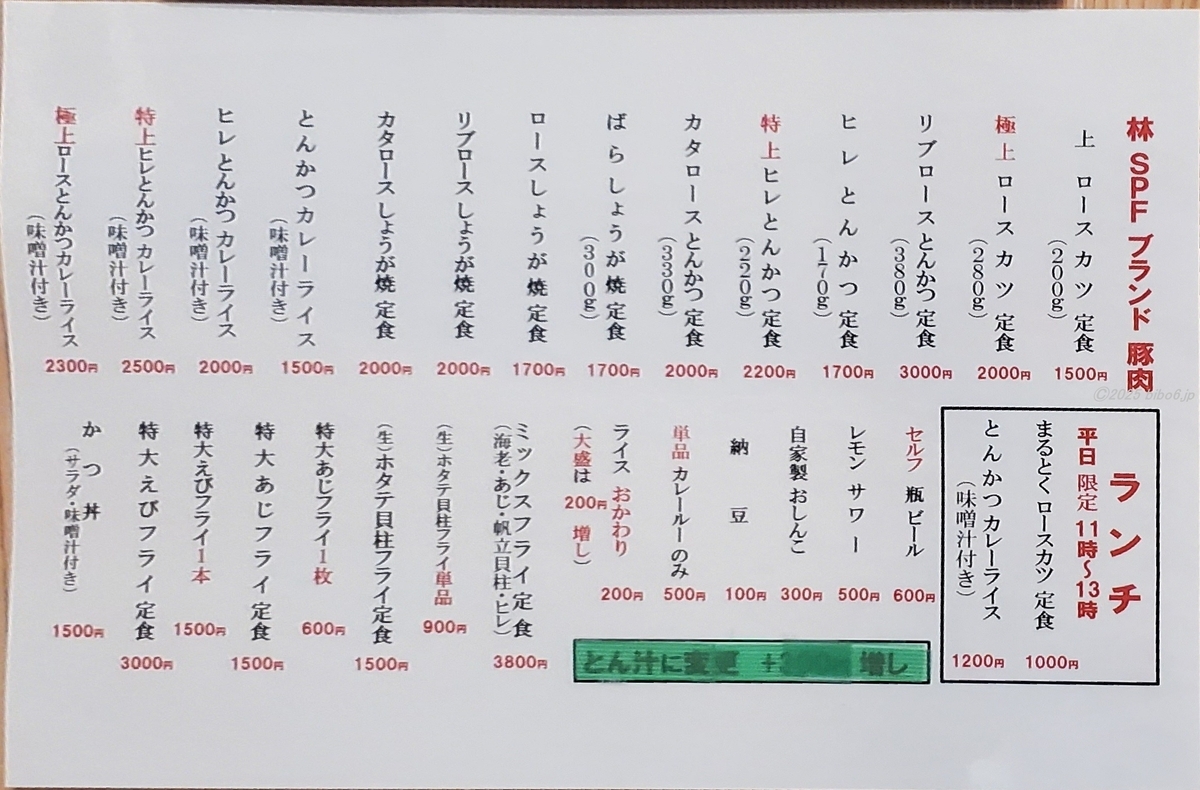 林 SPF ブランド 豚肉
上 ロースカツ 定食
(200g)
1500円
極上 ロースカツ 定食
(280g)
2000円
リブロースとんかつ 定食
(380g)
3000円
ヒレとんかつ 定食
(170g)
1700円
特上 ヒレとんかつ 定食
(220g)
2200円
カタロースとんかつ 定食
(330g)
2000円
ばらしょうが 焼 定食
(300g)
1700円
ロースしょうが 焼 定食
1700円
リブロース しょうが焼 定食
2000円
カタロース しょうが焼 定食
2000円
とんかつカレーライス
(味噌汁付き)
1500円
ヒレとんかつ カレーライス
(味噌汁付き)
2000円
特上ヒレとんかつ カレーライス
(味噌汁付き)
2500円
極上ロースとんかつカレーライス
(味噌汁付き)
2300円
©2025 bibo6.jp
ランチ
平日 限定 11時~13時
まるとくロースカツ 定食
1000円
とんかつカレーライス
(味噌汁付き)
1200円
セルフ 瓶 ビール
600円
レモン サワー
500円
自家製 おしんこ
300円
納豆
100円
単品 カレールーのみ
500円
ライス おかわり
200円
(大盛は 200円 増し)
とん汁に変更 + 増し
ミックスフライ 定食
(海老・あじ・帆立貝柱・ヒレ)
3800円
(生)ホタテ貝柱フライ単品
900円
(生)ホタテ貝柱フライ定食
1500円
特大あじフライ1枚
600円
特大あじフライ 定食
1500円
特大えびフライ1本
1500円
特大えびフライ 定食
3000円
かつ丼
(サラダ・味噌汁付き)
1500円